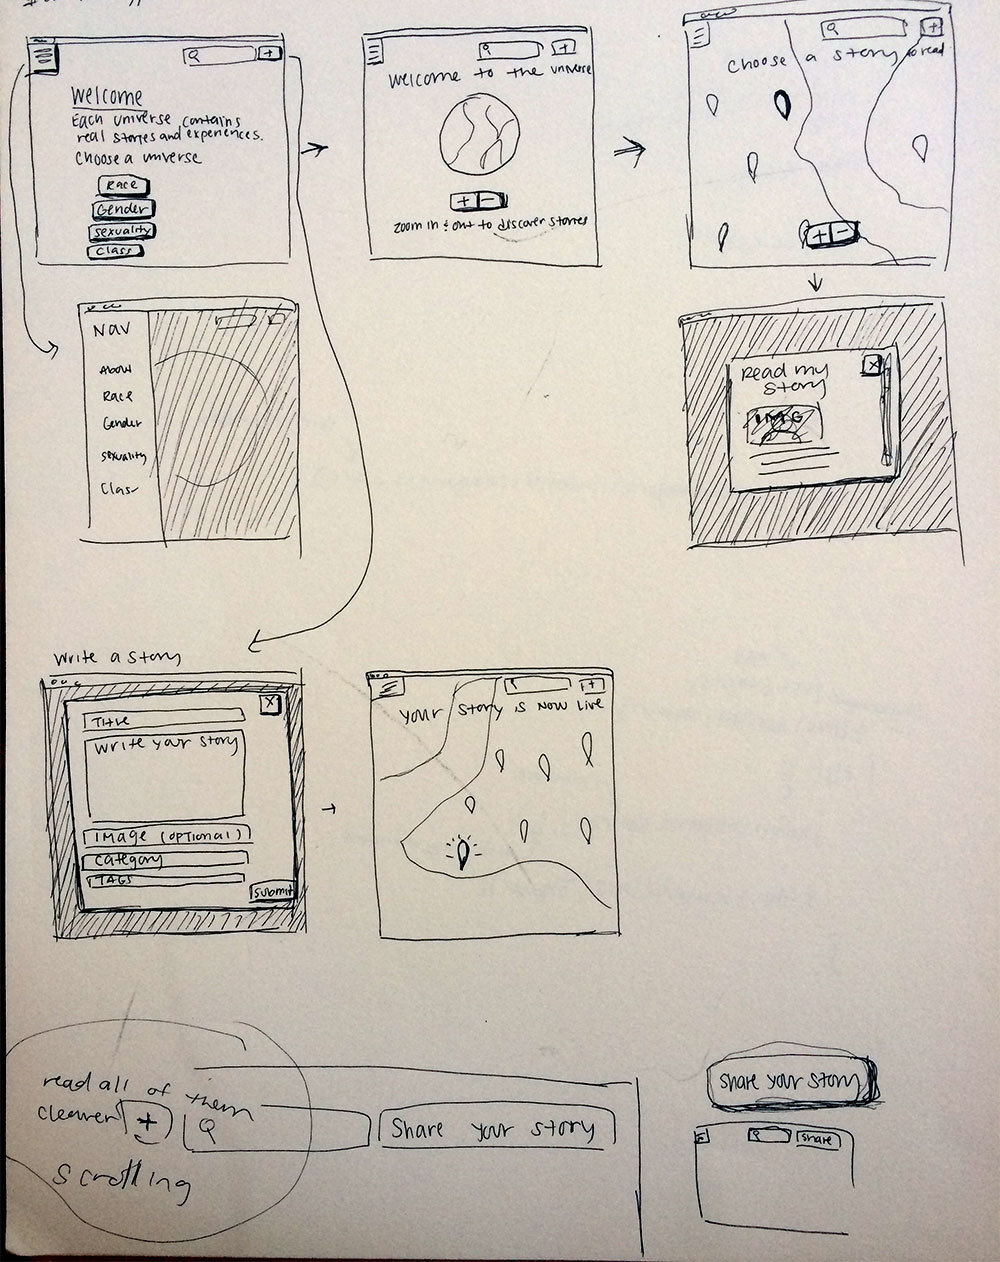 Q
+
Welcome
Each universe contains
real stories and experiences.
Choose a universe
Race
Gender
sexuality
class
Q
+
Welcome to the universe
+ -
zoom in & out to discover stories
Q
+
Choose a story to read
+ -
Nav
About
Race
Gender
sexuality
Class
X
Read my
story
IMG
Write a story
X
Title
Write your story
Image (optional)
category
TAGS
Submit
+
Your story is now Live
read all of them
clearer
+
Q
Share your story
scrolling
Share your story
Q
share